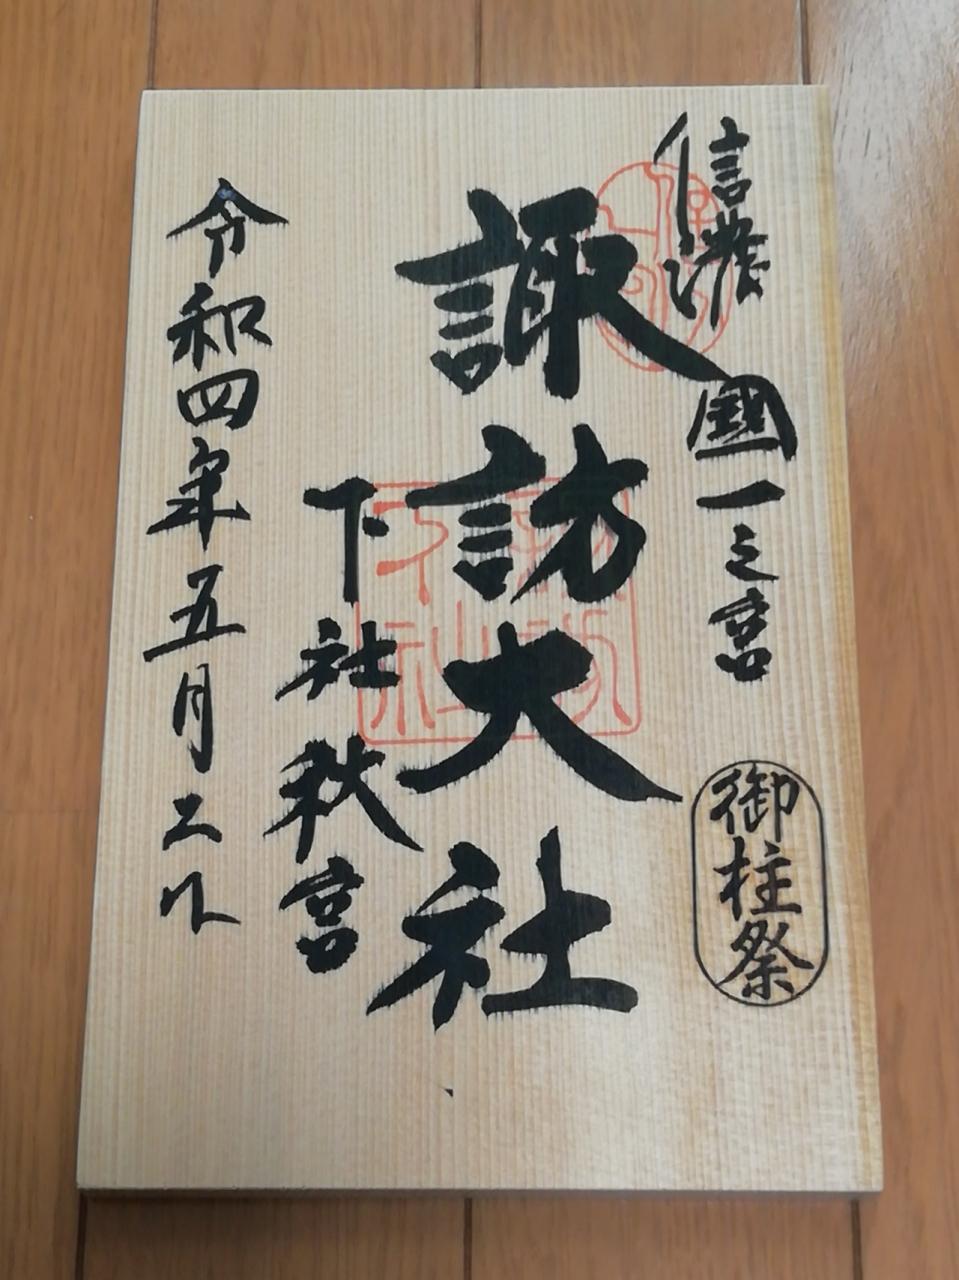 信濃國一之宮
御柱祭
諏訪大社
下社秋宮
令和四年五月二日